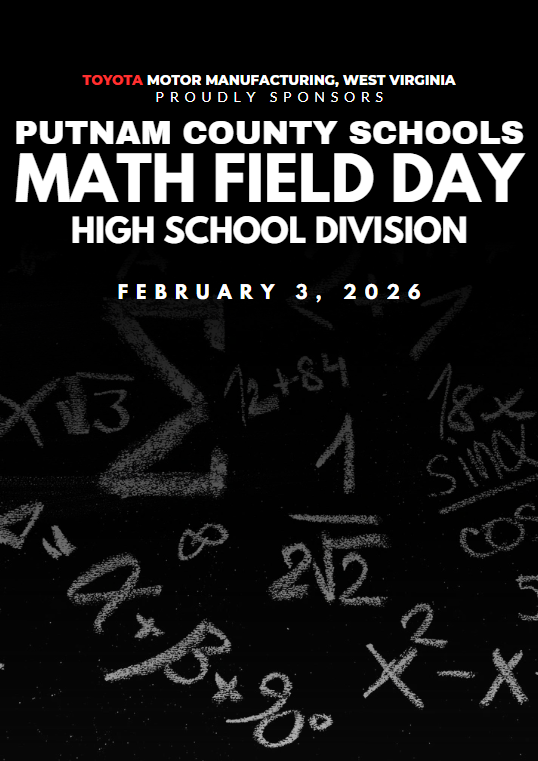 TOYOTA MOTOR MANUFACTURING, WEST VIRGINIA
PROUDLY SPONSORS
PUTNAM COUNTY SCHOOLS
MATH FIELD DAY
HIGH SCHOOL DIVISION
FEBRUARY 3, 2026
12+84
x√3
Σ
18x
1
sinα
2√2
cos
∞
x² - x